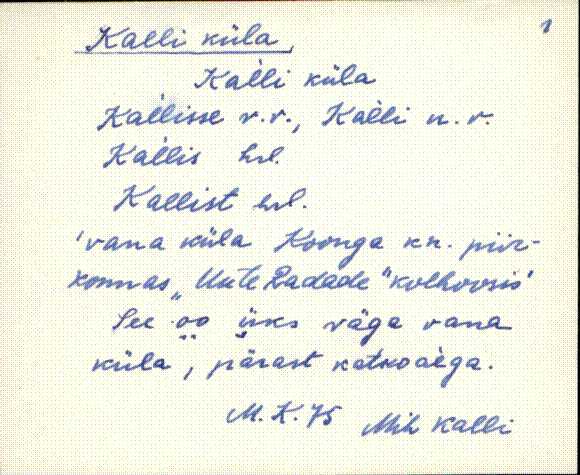 1
Kalli küla,
Kal̀li küla
Kal̀lisse r.v., Kal̀li n.v.
Kal̀lis hrl.
Kallist hrl.
'vana küla Koonga kn. piir-
konnas „Uute Radade" kolhoosis'
See oo üks väga vana
küla, pärast katkoaèga.
M.K. 75 Mih Kalli